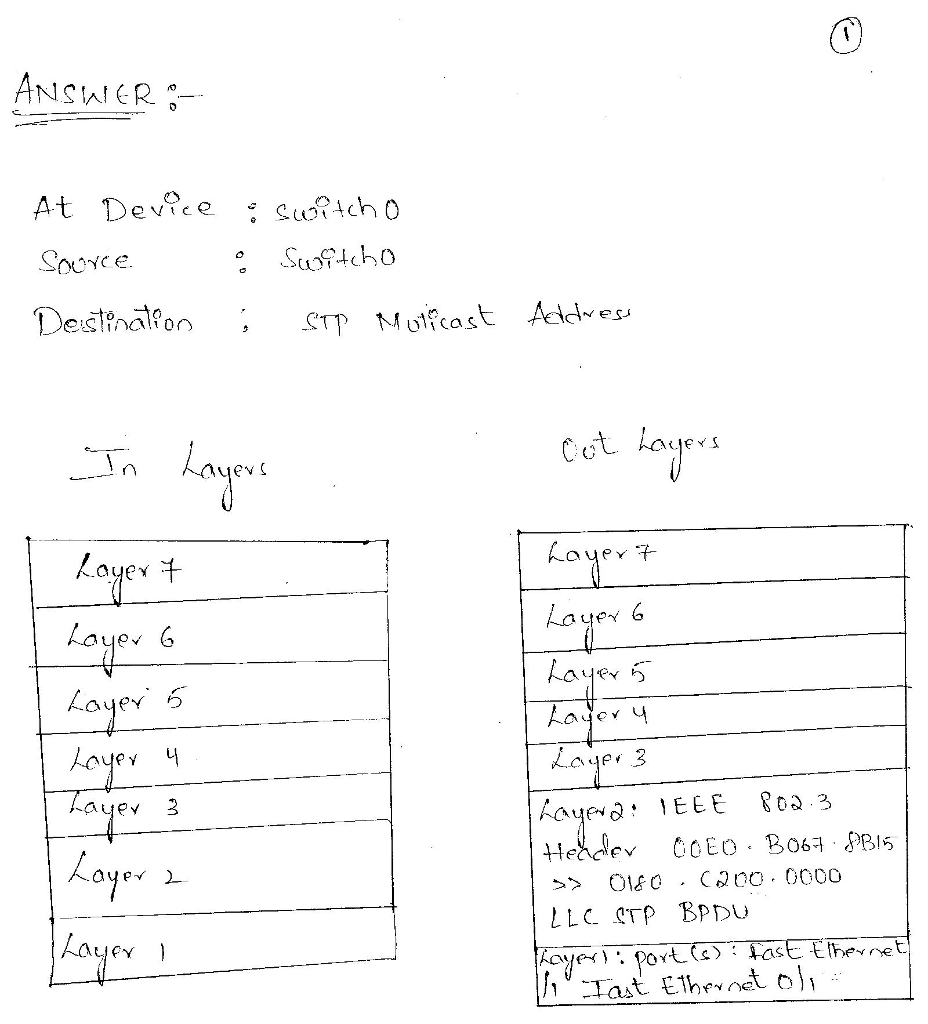 1
ANSWER :-
At Device : switch0
Source : Switch0
Destination : STP Muticast Address
In Layers
Out Layers
Layer 7
Layer 6
Layer 5
Layer 4
Layer 3
Layer 2
Layer 1
Layer 7
Layer 6
Layer 5
Layer 4
Layer 3
Layer2: IEEE 802.3
Header 00E0.B067.8B15
>> 0180.C200.0000
LLC STP BPDU
Layer1: port(s): Fast Ethernet
/1 Fast Ethernet 0/1